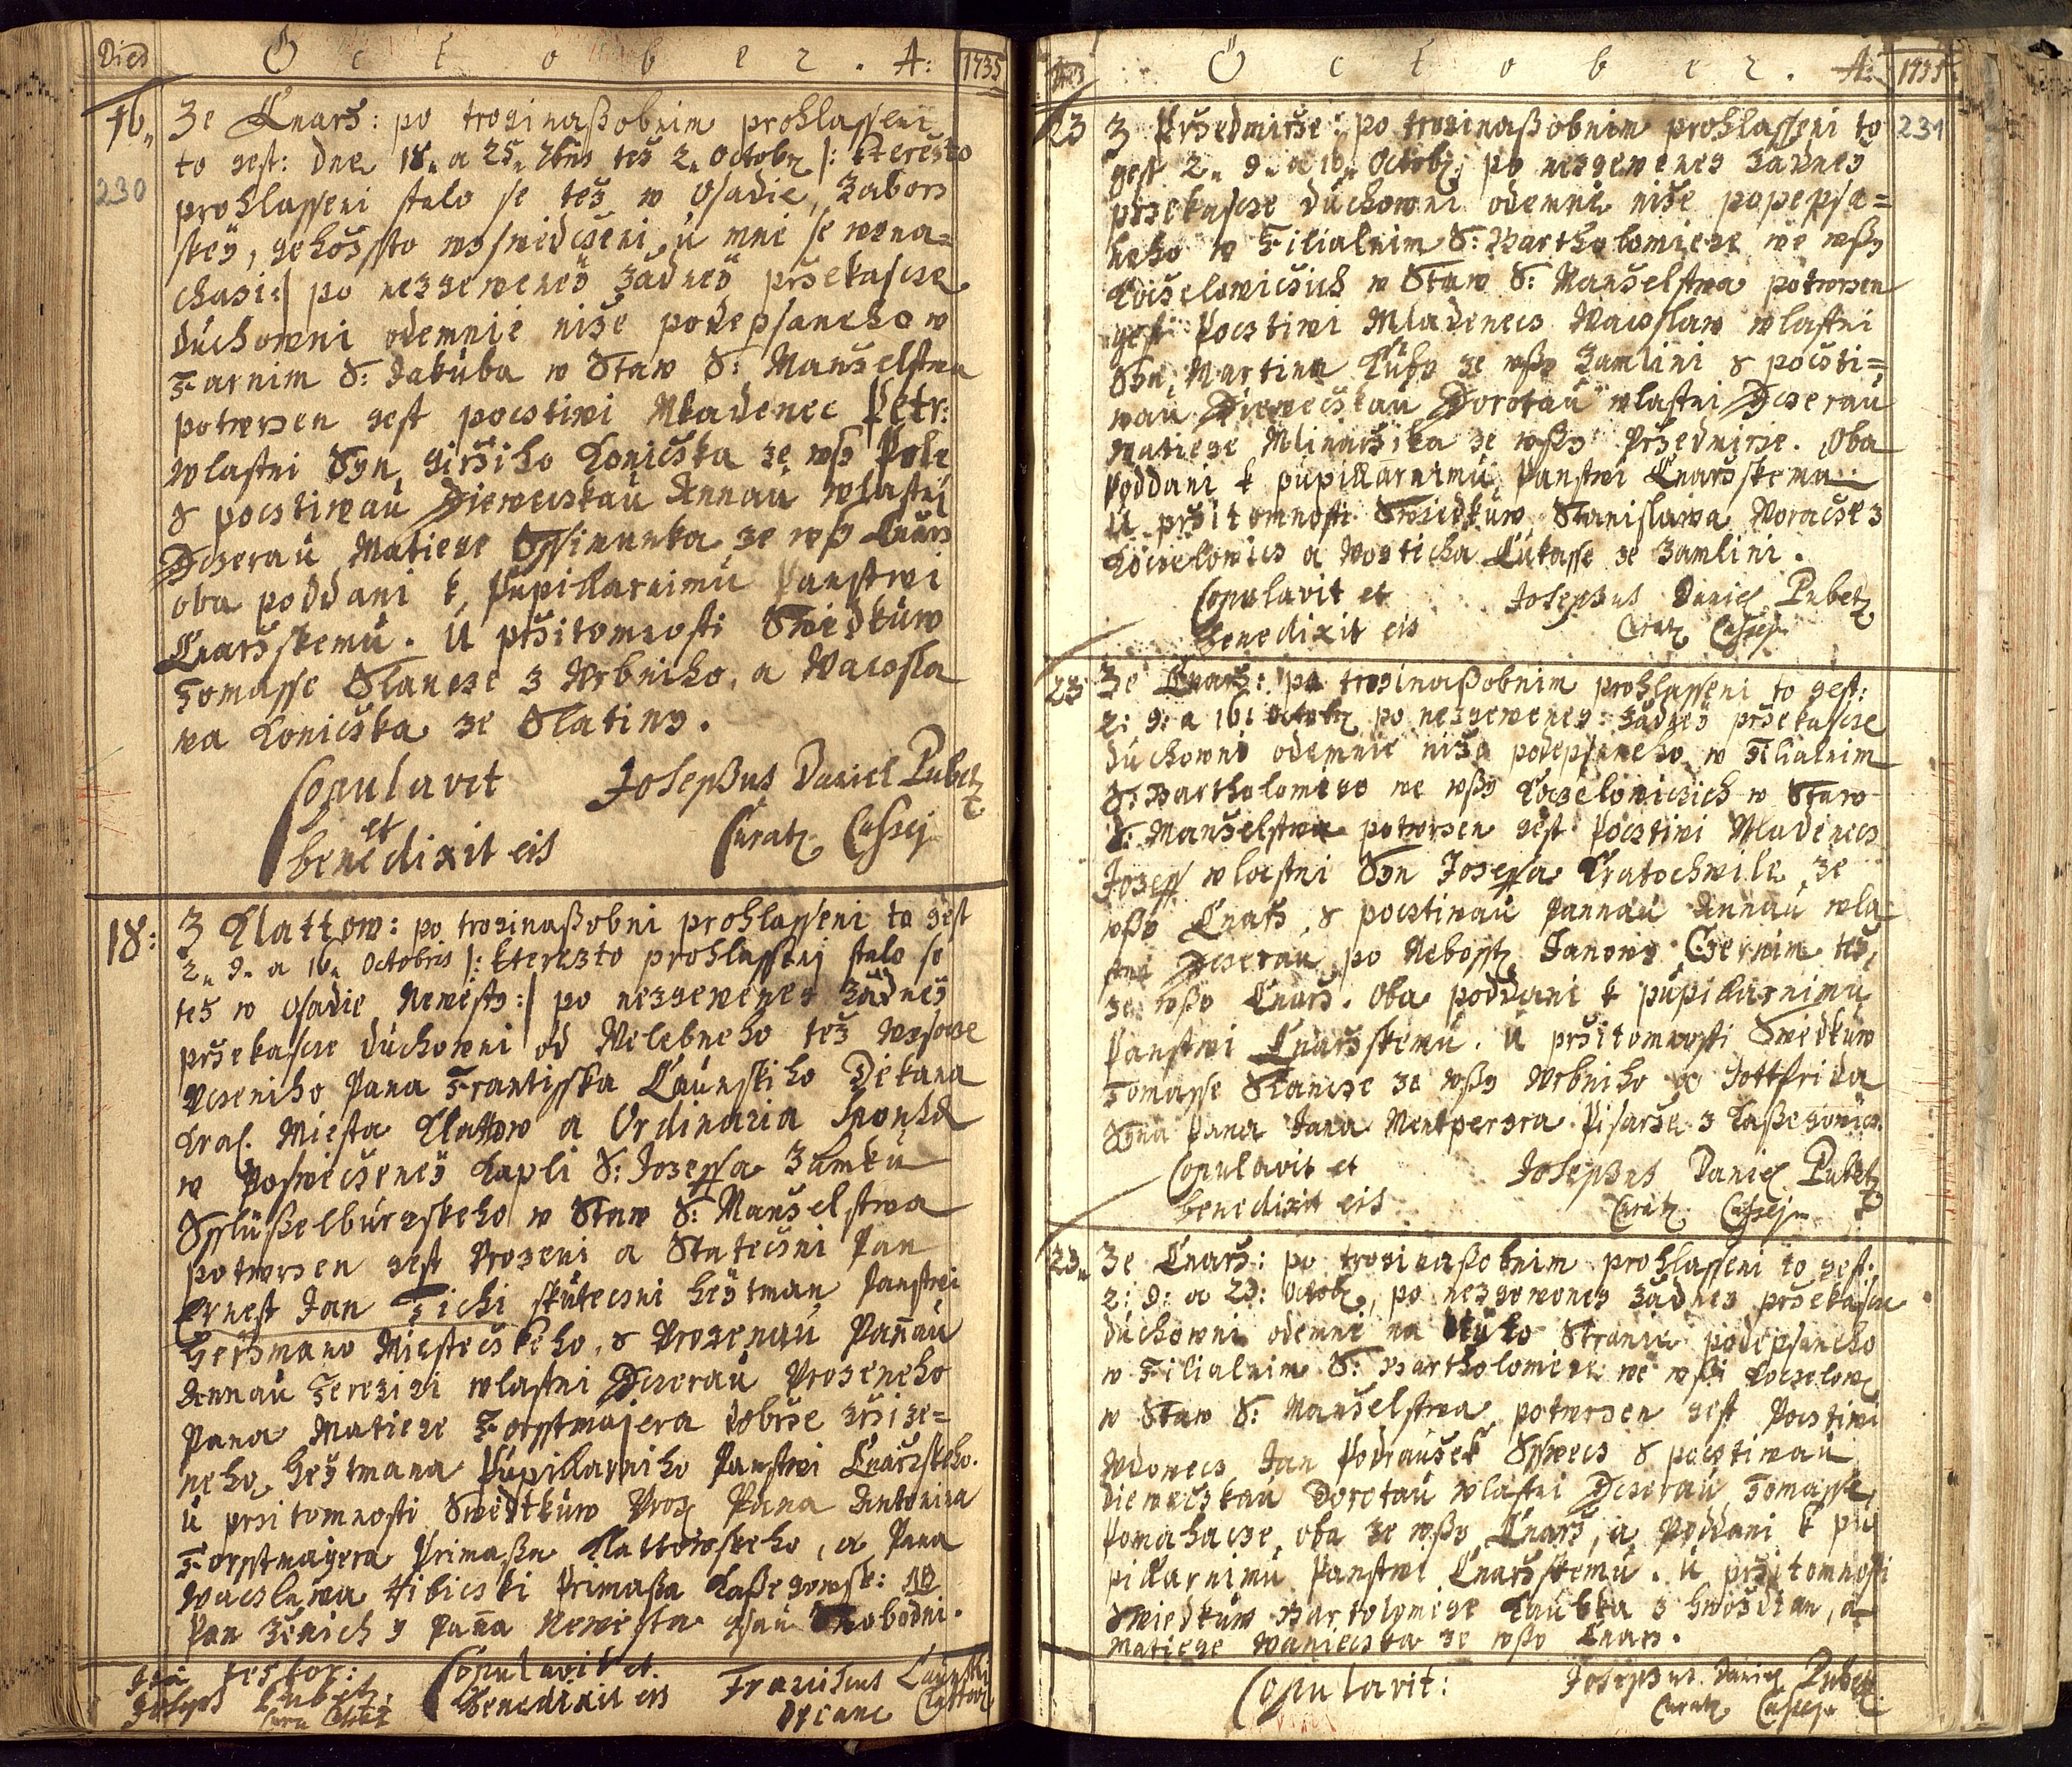 Dies October. A: 1735
16. Ze Cnarz: po troginaßobnim prohlasseni
to gest: dne 18. a 25. 7bris tez 2. Octobr |: kterezto
230
prohlasseni stalo se tez w Osadie Zabors
skey, gehozssto woswiedczeni u mne se wena=
chazi :| po nezgeweney zadney przekascze
duchowni odemnie nize podepsaneho w
Farnim S: Jakuba w Staw S: Manzelstwa
potwrzen gest pocstiwi Mladenec Petr:
wlastni Syn girziho Koniczka ze wsy Pole
s pocstiwau Dieweczkau Annau wlastni
Dczerau Matiege Ssimunka ze wsy Cnarz
oba poddani k Pupillarnimu Panstwi
Cnarzskemu. U przitomnosti Swiedkuw
Tomasse Slancze z Wrbniho, a Wacsla
wa Koniczka ze Slatiny.
Copulavit et benedixit eis
Josephus Daniel Pubetz
Curatz Cassej
18: Z Klattow: po troginaßobni prohlasseni to gest
2. 9. a 16. Octobris |: kterezto prohlasseni stalo se
tez w Osadie Newesty :| po nezgeweney zadney
przekascze duchowni od Welebneho tez Wysocze
Uczeniho Pana Frantisska Caunskiho Diekana
Kral. Miesta Klattow a Ordinaria Sponsa
w Poswieczeney Kapli S: Jozeffa Zamku
Sslüßelburgskeho w Staw S: Manzelstwa
potwrzen gest Urozeni a Stateczni Pan
Ernest Jan Tichi skuteczni heytman Panstwi
Herzmano Miesteczkeho, s Urozenau Pannau
Annau Terezigi wlastni Dczerau Urozeneho
Pana Matiege Forsstmajera dobrze zrzize=
neho heytmana Pupillarniho Panstwi Cnarzskeho.
U przitomnosti Swedtkuw Uroz Pana Antonina
Forsstmayera Primaßa Klattowskeho, a Pana
Wacslawa Hibiczki Primaßa Kaßegowsk:
Pan Zenich y Panna Newesta gsau Swobodni.
Ita testor:
Joseph Pubetz
Copulavit et
benedixit eis
Franciscus Caunski
Decanus Clattov
Dies October. A: 1735
23 Z Przedmirze: po troginaßobnim prohlasseni to 231
gest 2. 9. a 16. Octobr; po nezgeweney zadney
przekascze duchowni odemne nize popepsa=
neho w Filialnim S: Bartholomiege we wßy
Koczelowiczich w Staw S: Manzelstwa potwrzen
gest Pocstiwi Mladenecs Wacslaw wlastni
Syn Martina Kuby ze wßy Zamlini s pocsti=
wau Dieweczkau Dorotau wlastni Dczerau
Matiege Mlinarzika ze wßy Przedmirze. Oba
Poddani k pupillarnimu Panstwi Cnarzskemu.
U przitomnosti Swiedkuw Stanislawa Voracze z
Koczelowics a Wogticha Lukasse ze Zamlini.
Copulavit et
benedixit eis
Josephus Daniel Pubetz
Curatz Cassej
23 Ze Cnarz: po troginaßobnim prohlasseni to gest:
2: 9: a 16: Octobr po nezgeweney zadney przekascze
duchowni odemnie nize podepsaneho w Filialnim
S: Bartholomiege we wßy Koczelowiczich w Staw
S: Manzelstwa potwrzen gest Pocstiwi Mladenecs
Jozeff wlastni Syn Jozeffa Kratochwile ze
wßy Cnarz, s pocstiwau Pannau Annau wla
stni Dczerau po Nebosst Janowy Czernim tez
ze wßy Cnarz. Oba poddani k pupillarnimu
Panstwi Cnarzskemu. U przitomnosti Swedkuw
Tomasse Slancze ze wßy Wrbniho a Gottfrida
Syna Pana Jana Mentpergra Pisarze z Kaßegowics.
Copulavit et
benedixit eis
Josephus Daniel Pubetz
Curatz Cassej
23. Ze Cnarz: po troginaßobnim prohlasseni to gest:
2: 9: a 23: Octobr, po nezgeweney zadney przekascze
duchowni odemne na teyto Strance podepsaneho
w Filialnim S: Bartholomiege we wßi Koczelowic
w Staw S: Manzelstwa potwrzen gest Pocstiwi
Wdowecs Jan Podrauzek Sswecs s pocstiwau
Dieweczkau Dorotau wlastni Dczerau Tomasse
Pomahacze, oba ze wßy Cnarz, a Poddani k pu
pillarnimu Panstwi Cnarzskemu. U przitomnosti
Swiedkuw Bartolomege Kaubka z Hwozdian, a
Matiege Waniecska ze wßy Cnarz.
Copulavit:
Josephus Daniel Pubetz
Curatz Cassej